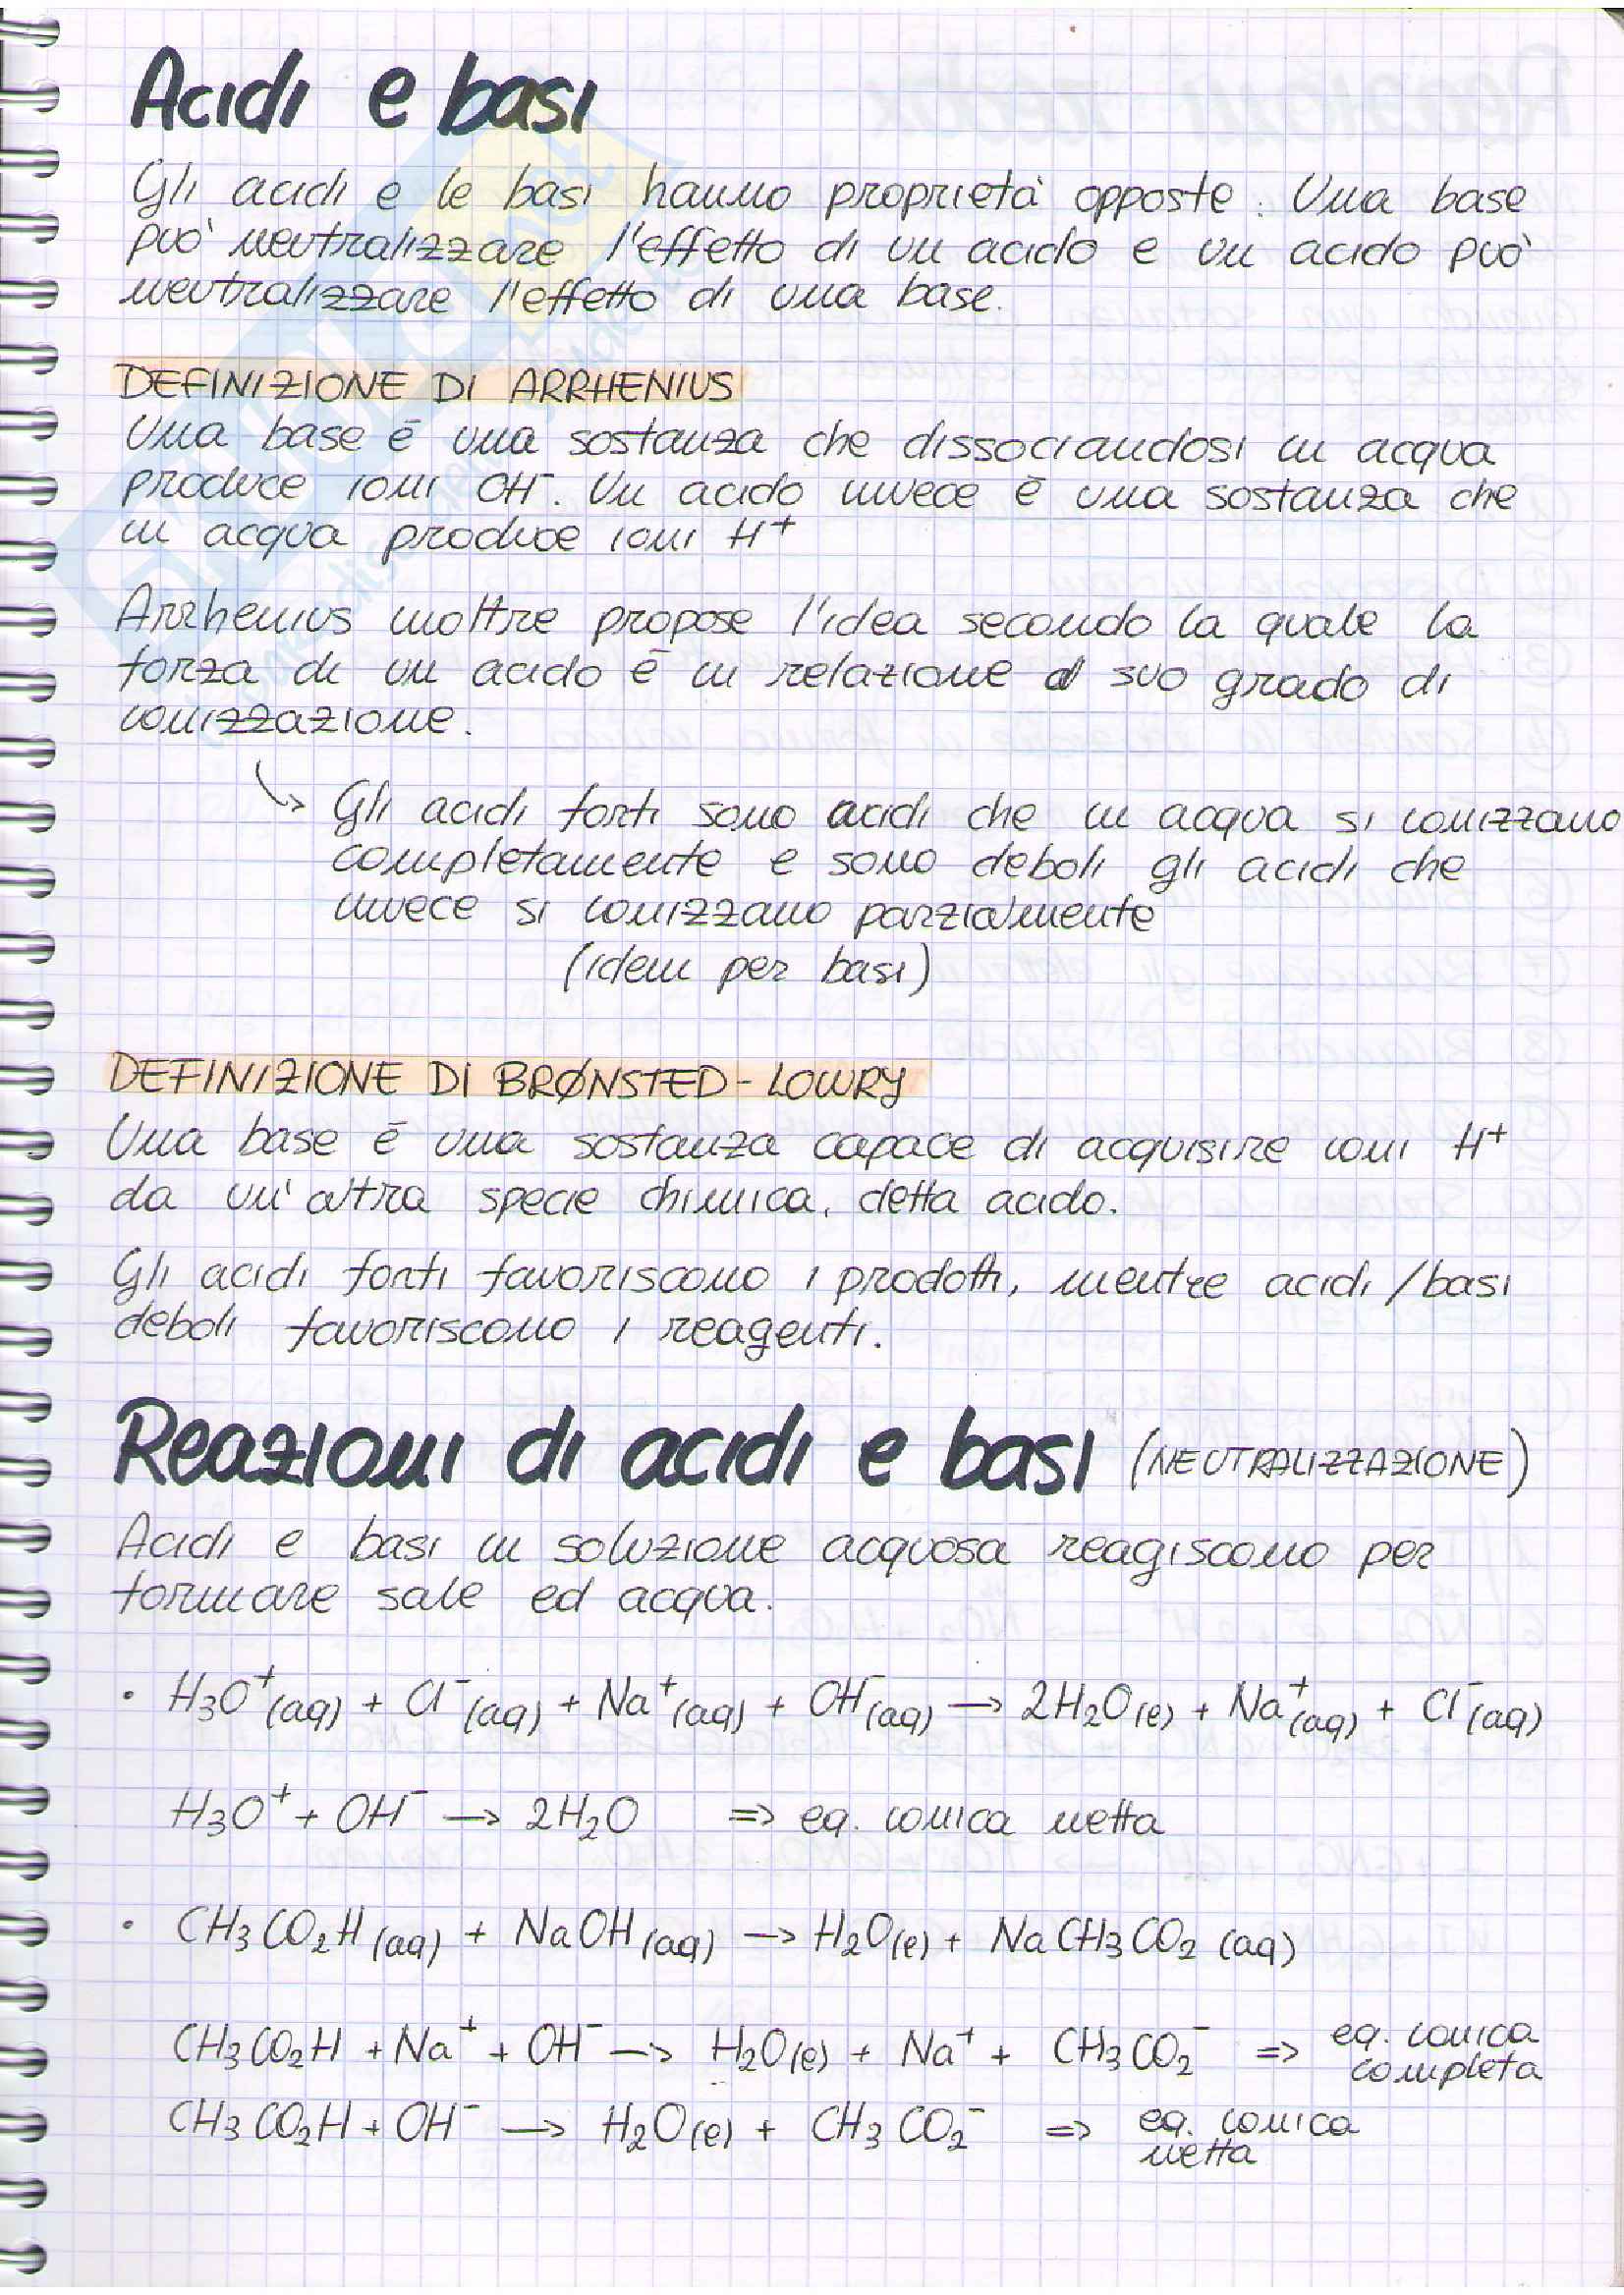 Acidi e basi
Gli acidi e le basi hanno proprietà opposte. Una base
può neutralizzare l'effetto di un acido e un acido può
neutralizzare l'effetto di una base.
DEFINIZIONE DI ARRHENIUS
Una base è una sostanza che dissociandosi in acqua
produce ioni OH⁻. Un acido invece è una sostanza che
in acqua produce ioni H⁺
Arrhenius inoltre propose l'idea secondo la quale la
forza di un acido è in relazione al suo grado di
ionizzazione.
↳ Gli acidi forti sono acidi che in acqua si ionizzano
completamente e sono deboli gli acidi che
invece si ionizzano parzialmente
(idem per basi)
DEFINIZIONE DI BRØNSTED-LOWRY
Una base è una sostanza capace di acquisire ioni H⁺
da un'altra specie chimica, detta acido.
Gli acidi forti favoriscono i prodotti, mentre acidi/basi
deboli favoriscono i reagenti.
Reazioni di acidi e basi (NEUTRALIZZAZIONE)
Acidi e basi in soluzione acquosa reagiscono per
formare sale ed acqua.
• H₃O⁺(aq) + Cl⁻(aq) + Na⁺(aq) + OH⁻(aq) → 2H₂O(l) + Na⁺(aq) + Cl⁻(aq)
H₃O⁺ + OH⁻ → 2H₂O => eq. ionica netta
• CH₃CO₂H(aq) + NaOH(aq) → H₂O(l) + NaCH₃CO₂(aq)
CH₃CO₂H + Na⁺ + OH⁻ → H₂O(l) + Na⁺ + CH₃CO₂⁻ => eq. ionica
completa
CH₃CO₂H + OH⁻ → H₂O(l) + CH₃CO₂⁻ => eq. ionica
netta